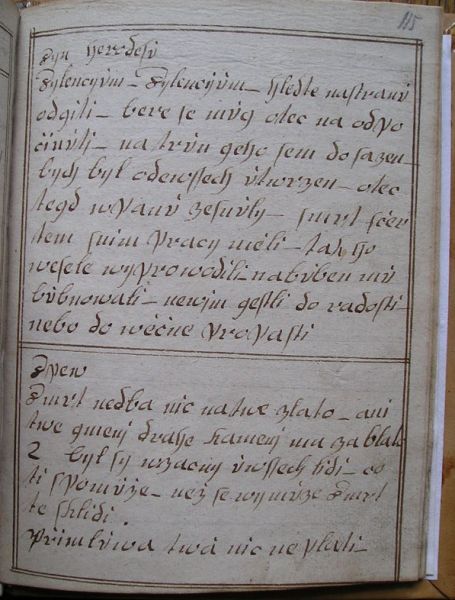 115
Syn Herodesů
Sylencyům – Sylencyům – hleďte na stranů
odgiti – bere se můg otec na odpo
činůtj – na trůn geho sem dosazen
bych byl odewssech ůtwrzen – otec
tegd w panů zesnůly – smrt sčer
tem snim pracy měli – tak ho
wesele wyprowodili na bůben mů
bůbnowali – newjm gestli do radosti
nebo do wěčne propasti
Spew
Smrt nedba nic na twe zlato – ani
twe gmenj drahe kamenj ma za blato
2 byl sy wzacny ů wssech lidi – co
ti spomůže – než se wymůže Smrt
te sklidi
Přimlůwa twá nic ne plati –